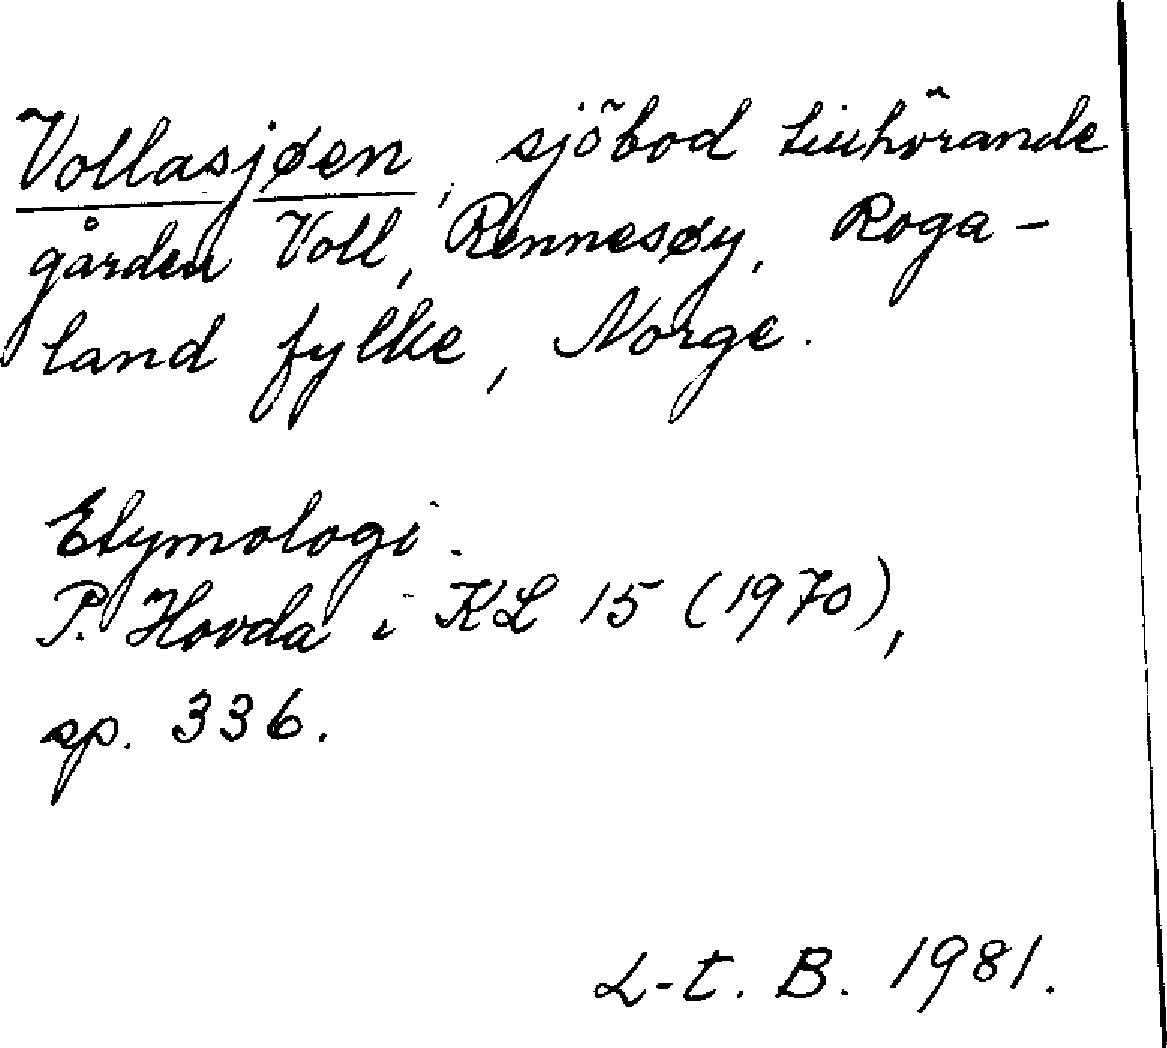 Vollasjøen, sjöbod tillhörande
gården Voll, Rennesøy, Roga-
land fylke, Norge.
Etymologi.
P. Hovda i KL 15 (1970),
sp. 336.
L-t. B. 1981.